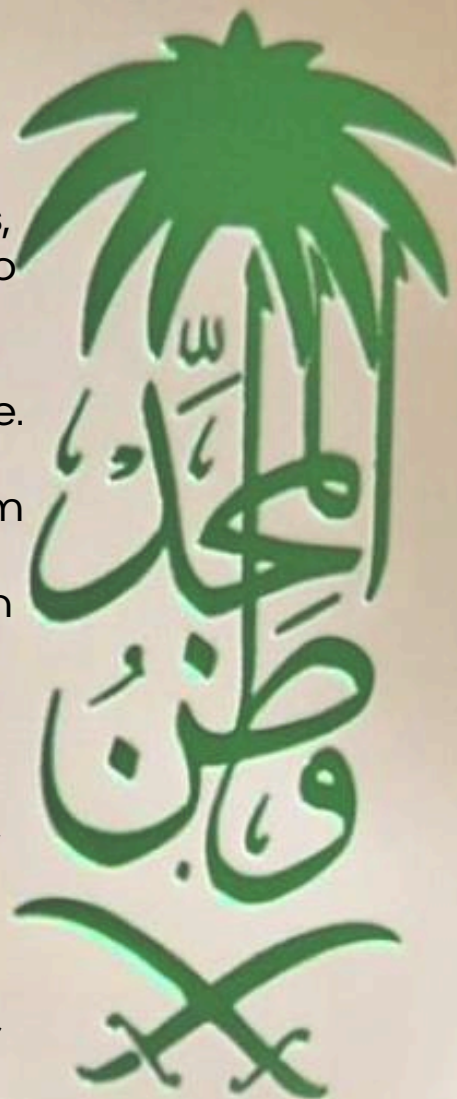 وطن
المجد